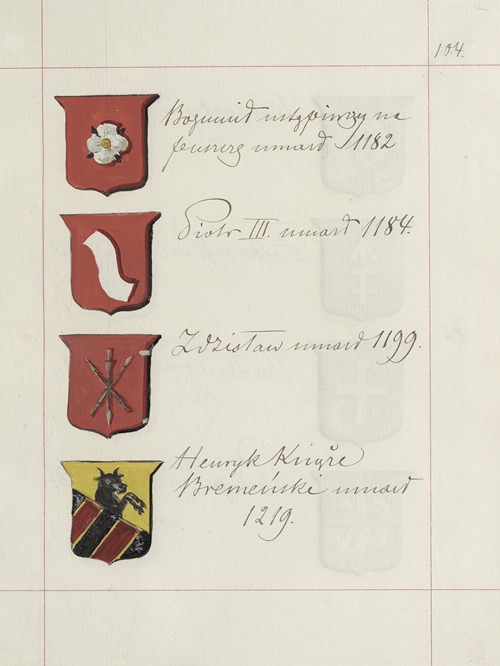 104.
Bogumił ustąpiwszy na
puszczę umarł 1182
Piotr III. umarł 1184.
Zdzisław umarł 1199.
Henryk Książe
Bremeński umarł
1219.